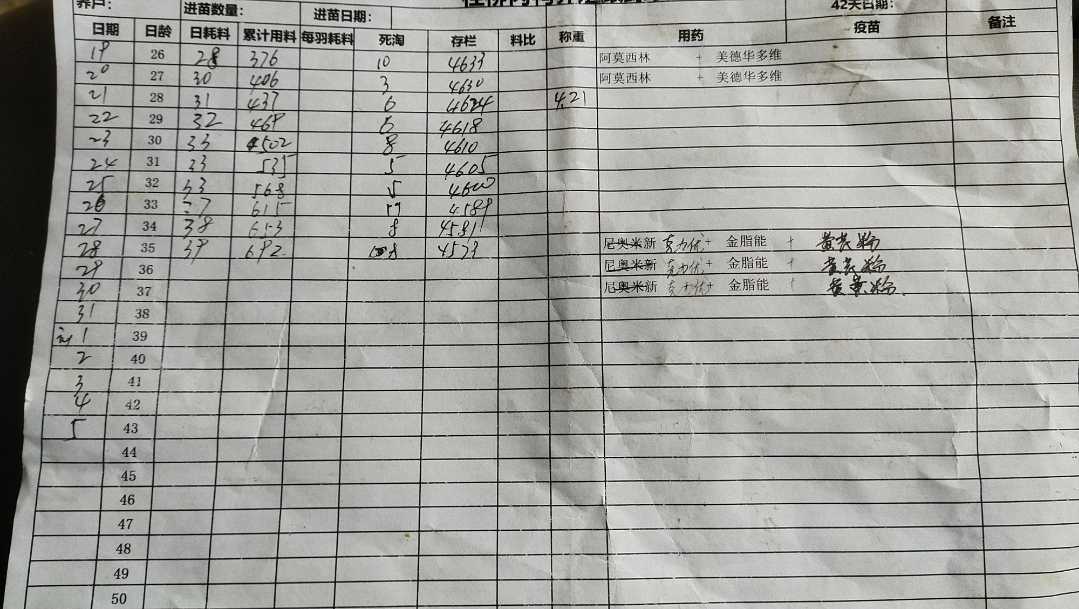 养户： 进苗数量： 进苗日期： 42天日期：
日期 日龄 日耗料 累计用料 每羽耗料 死淘 存栏 料比 称重 用药 疫苗 备注
19 26 28 376 10 4633 阿莫西林 + 美德华多维
20 27 30 406 3 4630 阿莫西林 + 美德华多维
21 28 31 437 6 4624 4.21
22 29 32 469 6 4618
23 30 33 502 8 4610
24 31 33 535 5 4605
25 32 33 568 5 4600
26 33 615 4589
27 34 38 653 8 4581
28 35 39 692 8 4573 尼奥米新 克力优+ 金脂能 + 黄芪粉
29 36 尼奥米新 克力优+ 金脂能 + 黄芪粉
30 37 尼奥米新 克力优+ 金脂能 + 黄芪粉
31 38
1 39
2 40
3 41
4 42
5 43
44
45
46
47
48
49
50